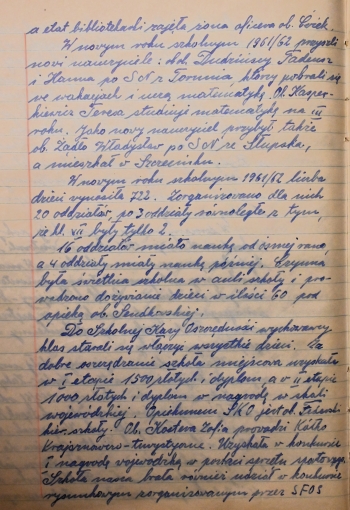 a etat bibliotekarki zajęła żona oficera ob. Ćwiek.
W nowym roku szkolnym 1961/62 przyszli
nowi nauczyciele: ob. ob. Dudzińscy Tadeusz
i Hanna po S N z Torunia, którzy pobrali się
we wakacjach i uczą matematykę. Ob. Kacper-
kiewicz Teresa studiuje matematykę na III
roku. Jako nowy nauczyciel przybył także
ob. Żądło Władysław po S N ze Słupska,
a mieszkał w Szczecinku.
W nowym roku szkolnym 1961/62 liczba
dzieci wynosiła 722. Zorganizowano dla nich
20 oddziałów, po 3 oddziały równoległe z tym,
że kl. VII były tylko 2.
16 oddziałów miało naukę od ósmej rano,
a 4 oddziały miały naukę później. Czynna
była świetlica szkolna w auli szkoły i pro-
wadzono dożywianie dzieci w ilości 60 pod
opieką ob. Sendkowskiej.
Do Szkolnej Kasy Oszczędności wychowawcy
klas starali się włączyć wszystkie dzieci. Za
dobre oszczędzanie szkoła miejscowa uzyskała
w I etapie 1500 złotych i dyplom, a w II etapie
1000 złotych i dyplom w nagrodę w skali
wojewódzkiej. Opiekunem SKO jest ob.
kier. szkoły. Ob. Kostowa Zofia prowadzi Kółko
Krajoznawczo-turystyczne. Uzyskała w konkursie
I nagrodę wojewódzką w postaci sprzętu sportowego.
Szkoła nasza brała również udział w konkursie
rysunkowym zorganizowanym przez SFOS